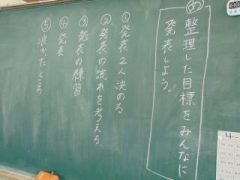 め 整理した目標をみんなに
発表しよう。
①発表2人決める
②発表の流れを考える
③発表の練習
④発表
⑤良かったところ